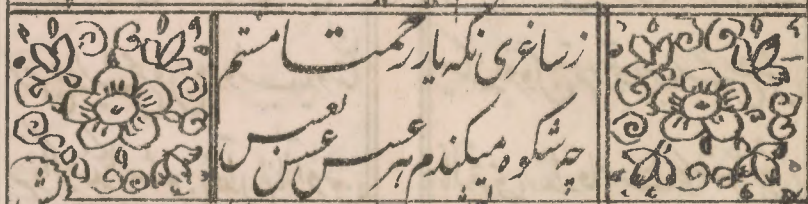 زساغری نگه یار رحمتا مستم
چه شکوه میکندم هر عسس عسس بعسس